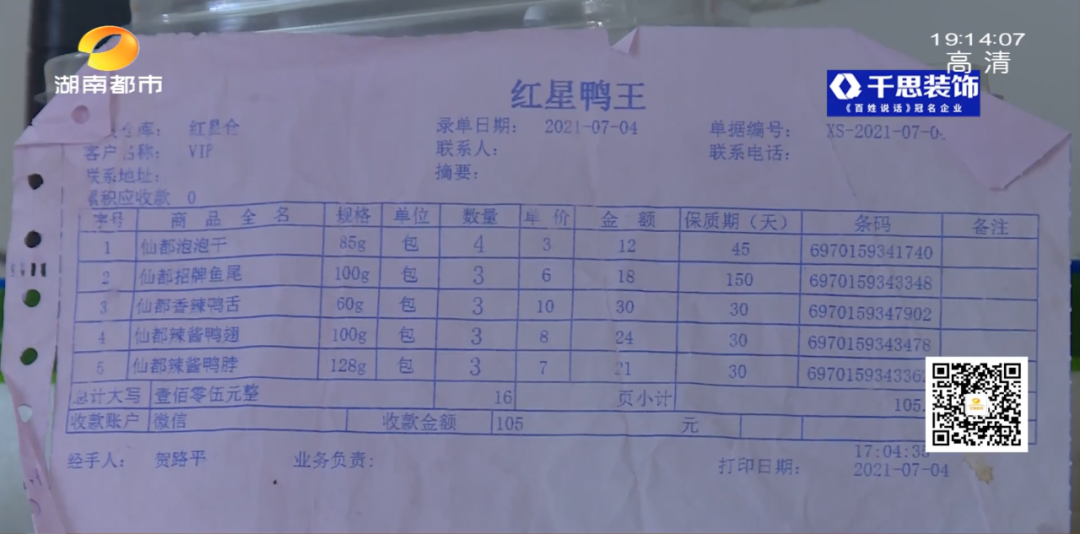 湖南都市
19:14:07
高清
千思装饰
《百姓说话》冠名企业
红星鸭王
仓库： 红星仓 录单日期： 2021-07-04 单据编号： XS-2021-07-0
客户名称： VIP 联系人： 联系电话：
联系地址： 摘要：
累积应收款 0
字号 商品全名 规格 单位 数量 单价 金额 保质期（天） 条码 备注
1 仙都泡泡干 85g 包 4 3 12 45 6970159341740
2 仙都招牌鱼尾 100g 包 3 6 18 150 6970159343348
3 仙都香辣鸭舌 60g 包 3 10 30 30 6970159347902
4 仙都辣酱鸭翅 100g 包 3 8 24 30 6970159343478
5 仙都辣酱鸭脖 128g 包 3 7 21 30 697015934336
总计大写 壹佰零伍元整 16 页小计 105.
收款账户 微信 收款金额 105 元
经手人： 贺路平 业务负责： 打印日期： 17:04:35
2021-07-04